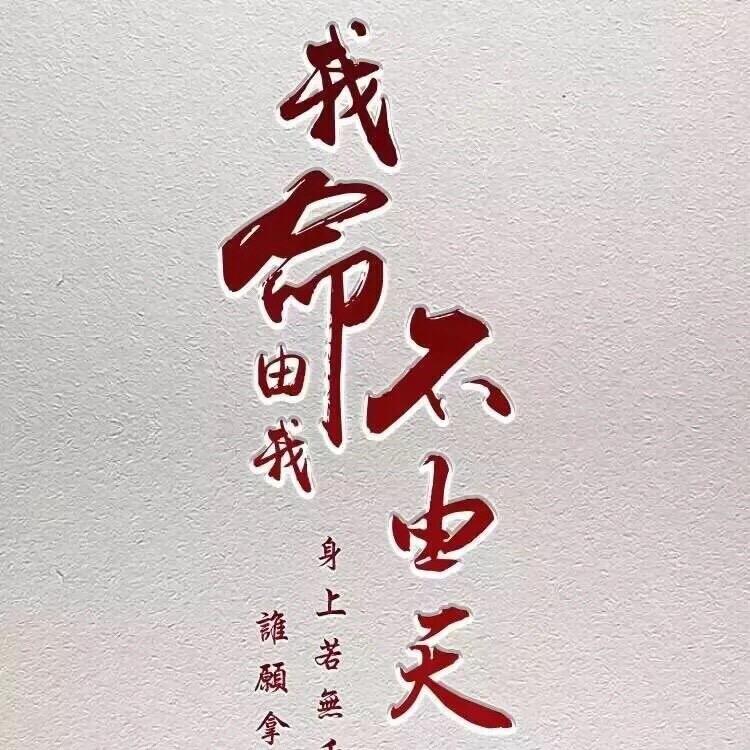 我命由我
不由天
身上若無
誰願拿